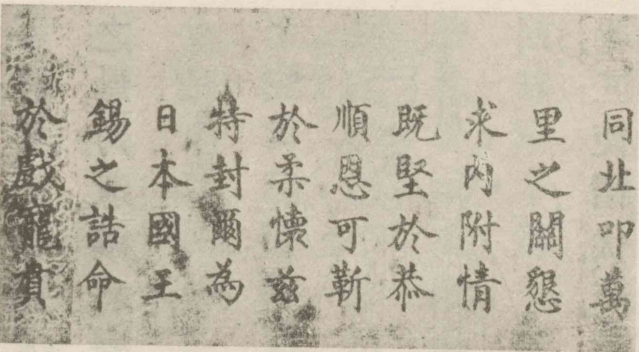 同北叩萬
里之關懇
求内附情
既堅於恭
順恩可靳
於柔懷茲
特封爾為
日本國王
錫之誥命
於戲龍賁